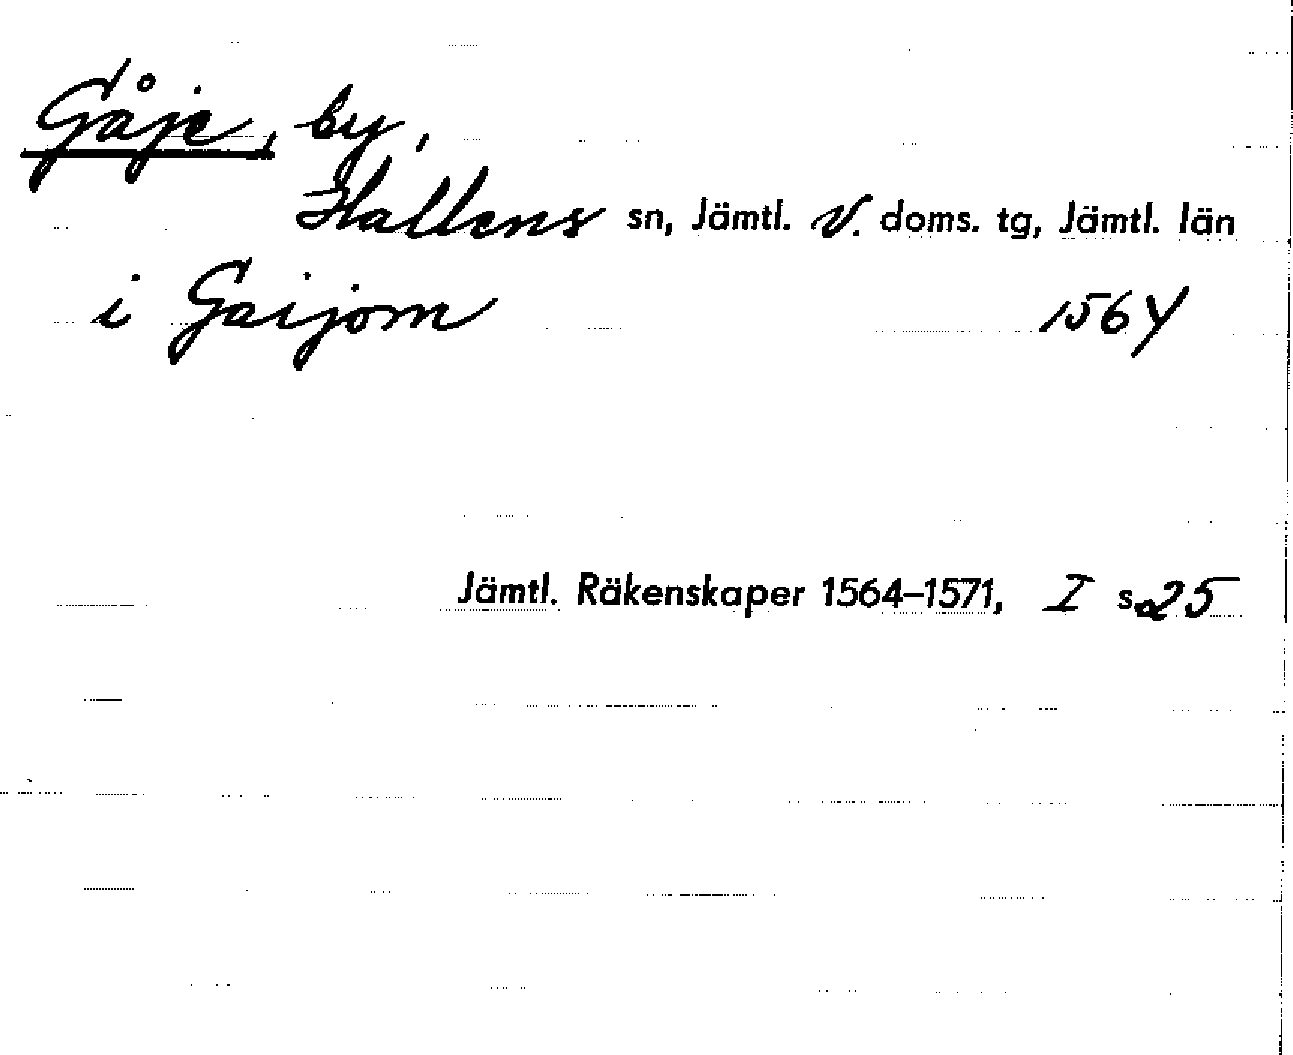 Gåje, by,
Hallens sn, Jämtl. V. doms. tg, Jämtl. län
i Gaijom 1564
Jämtl. Räkenskaper 1564–1571, I s. 25